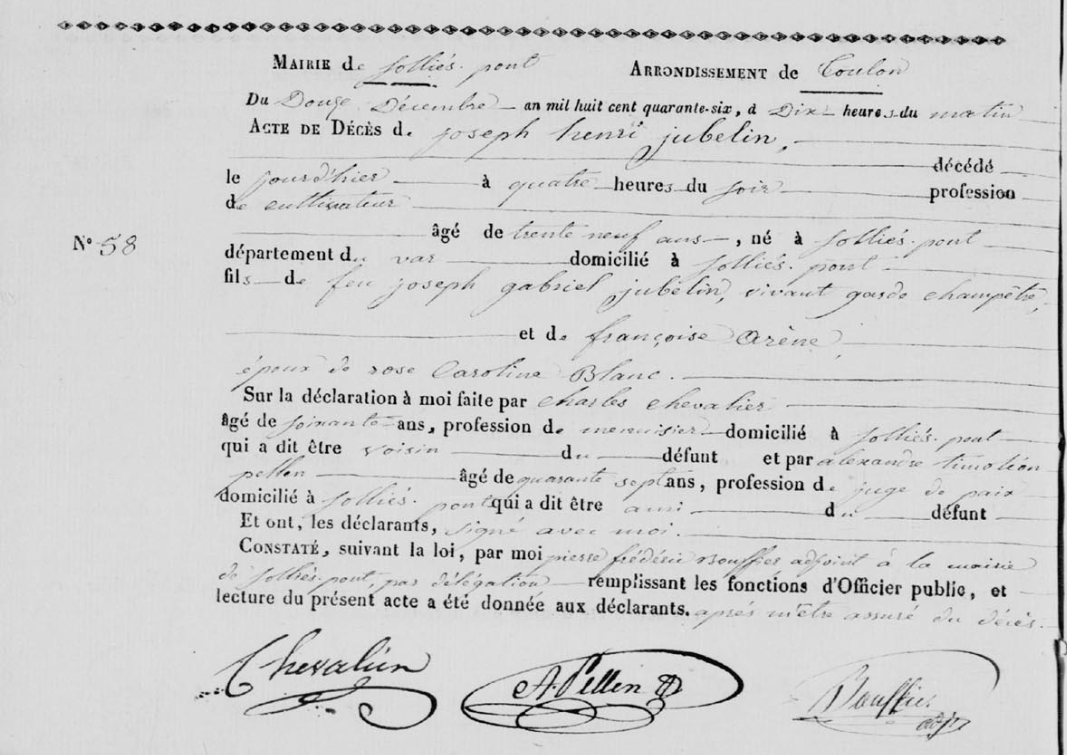 MAIRIE de solliés-pont ARRONDISSEMENT de Toulon
Du Douze Décembre an mil huit cent quarante-six, à Dix heures du matin
ACTE DE DÉCÈS de joseph henri jubelin,
décédé
le jourd'hier à quatre heures du soir profession
de cultivateur
N° 58
âgé de trente neuf ans, né à solliés-pont
département du var domicilié à solliés-pont
fils de feu joseph gabriel jubelin, vivant garde champêtre,
et de françoise arène,
époux de rose Caroline Blanc.
Sur la déclaration à moi faite par charles chevalier
âgé de soixante ans, profession de menuisier domicilié à solliés-pont
qui a dit être voisin du défunt et par alexandre timoléon
pellen âgé de quarante sept ans, profession de juge de paix
domicilié à solliés-pont qui a dit être ami du défunt
Et ont, les déclarants, signé avec moi.
CONSTATÉ, suivant la loi, par moi pierre frédéric Bouffier adjoint à la mairie
de solliés-pont, par délégation remplissant les fonctions d'Officier public, et
lecture du présent acte a été donnée aux déclarants. après m'être assuré du décès.
Chevalier A. Pellen Bouffier
adjt